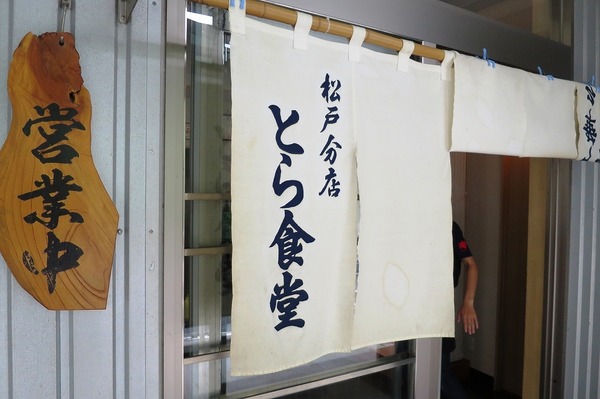 営業中
松戸分店
とら食堂